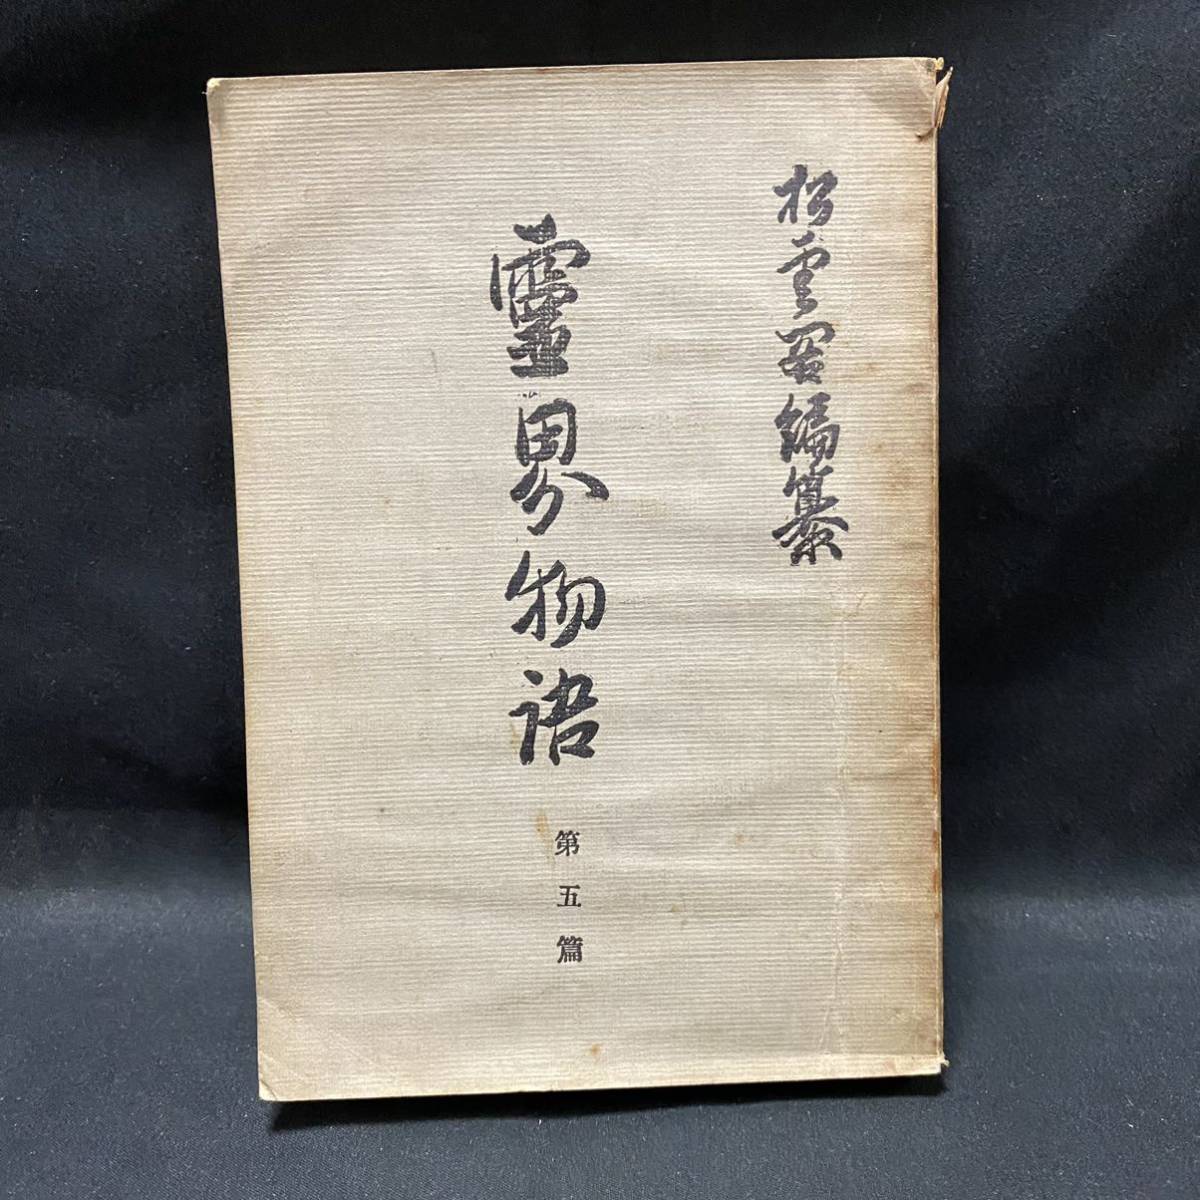 松雲閣編纂
靈界物語
第五篇